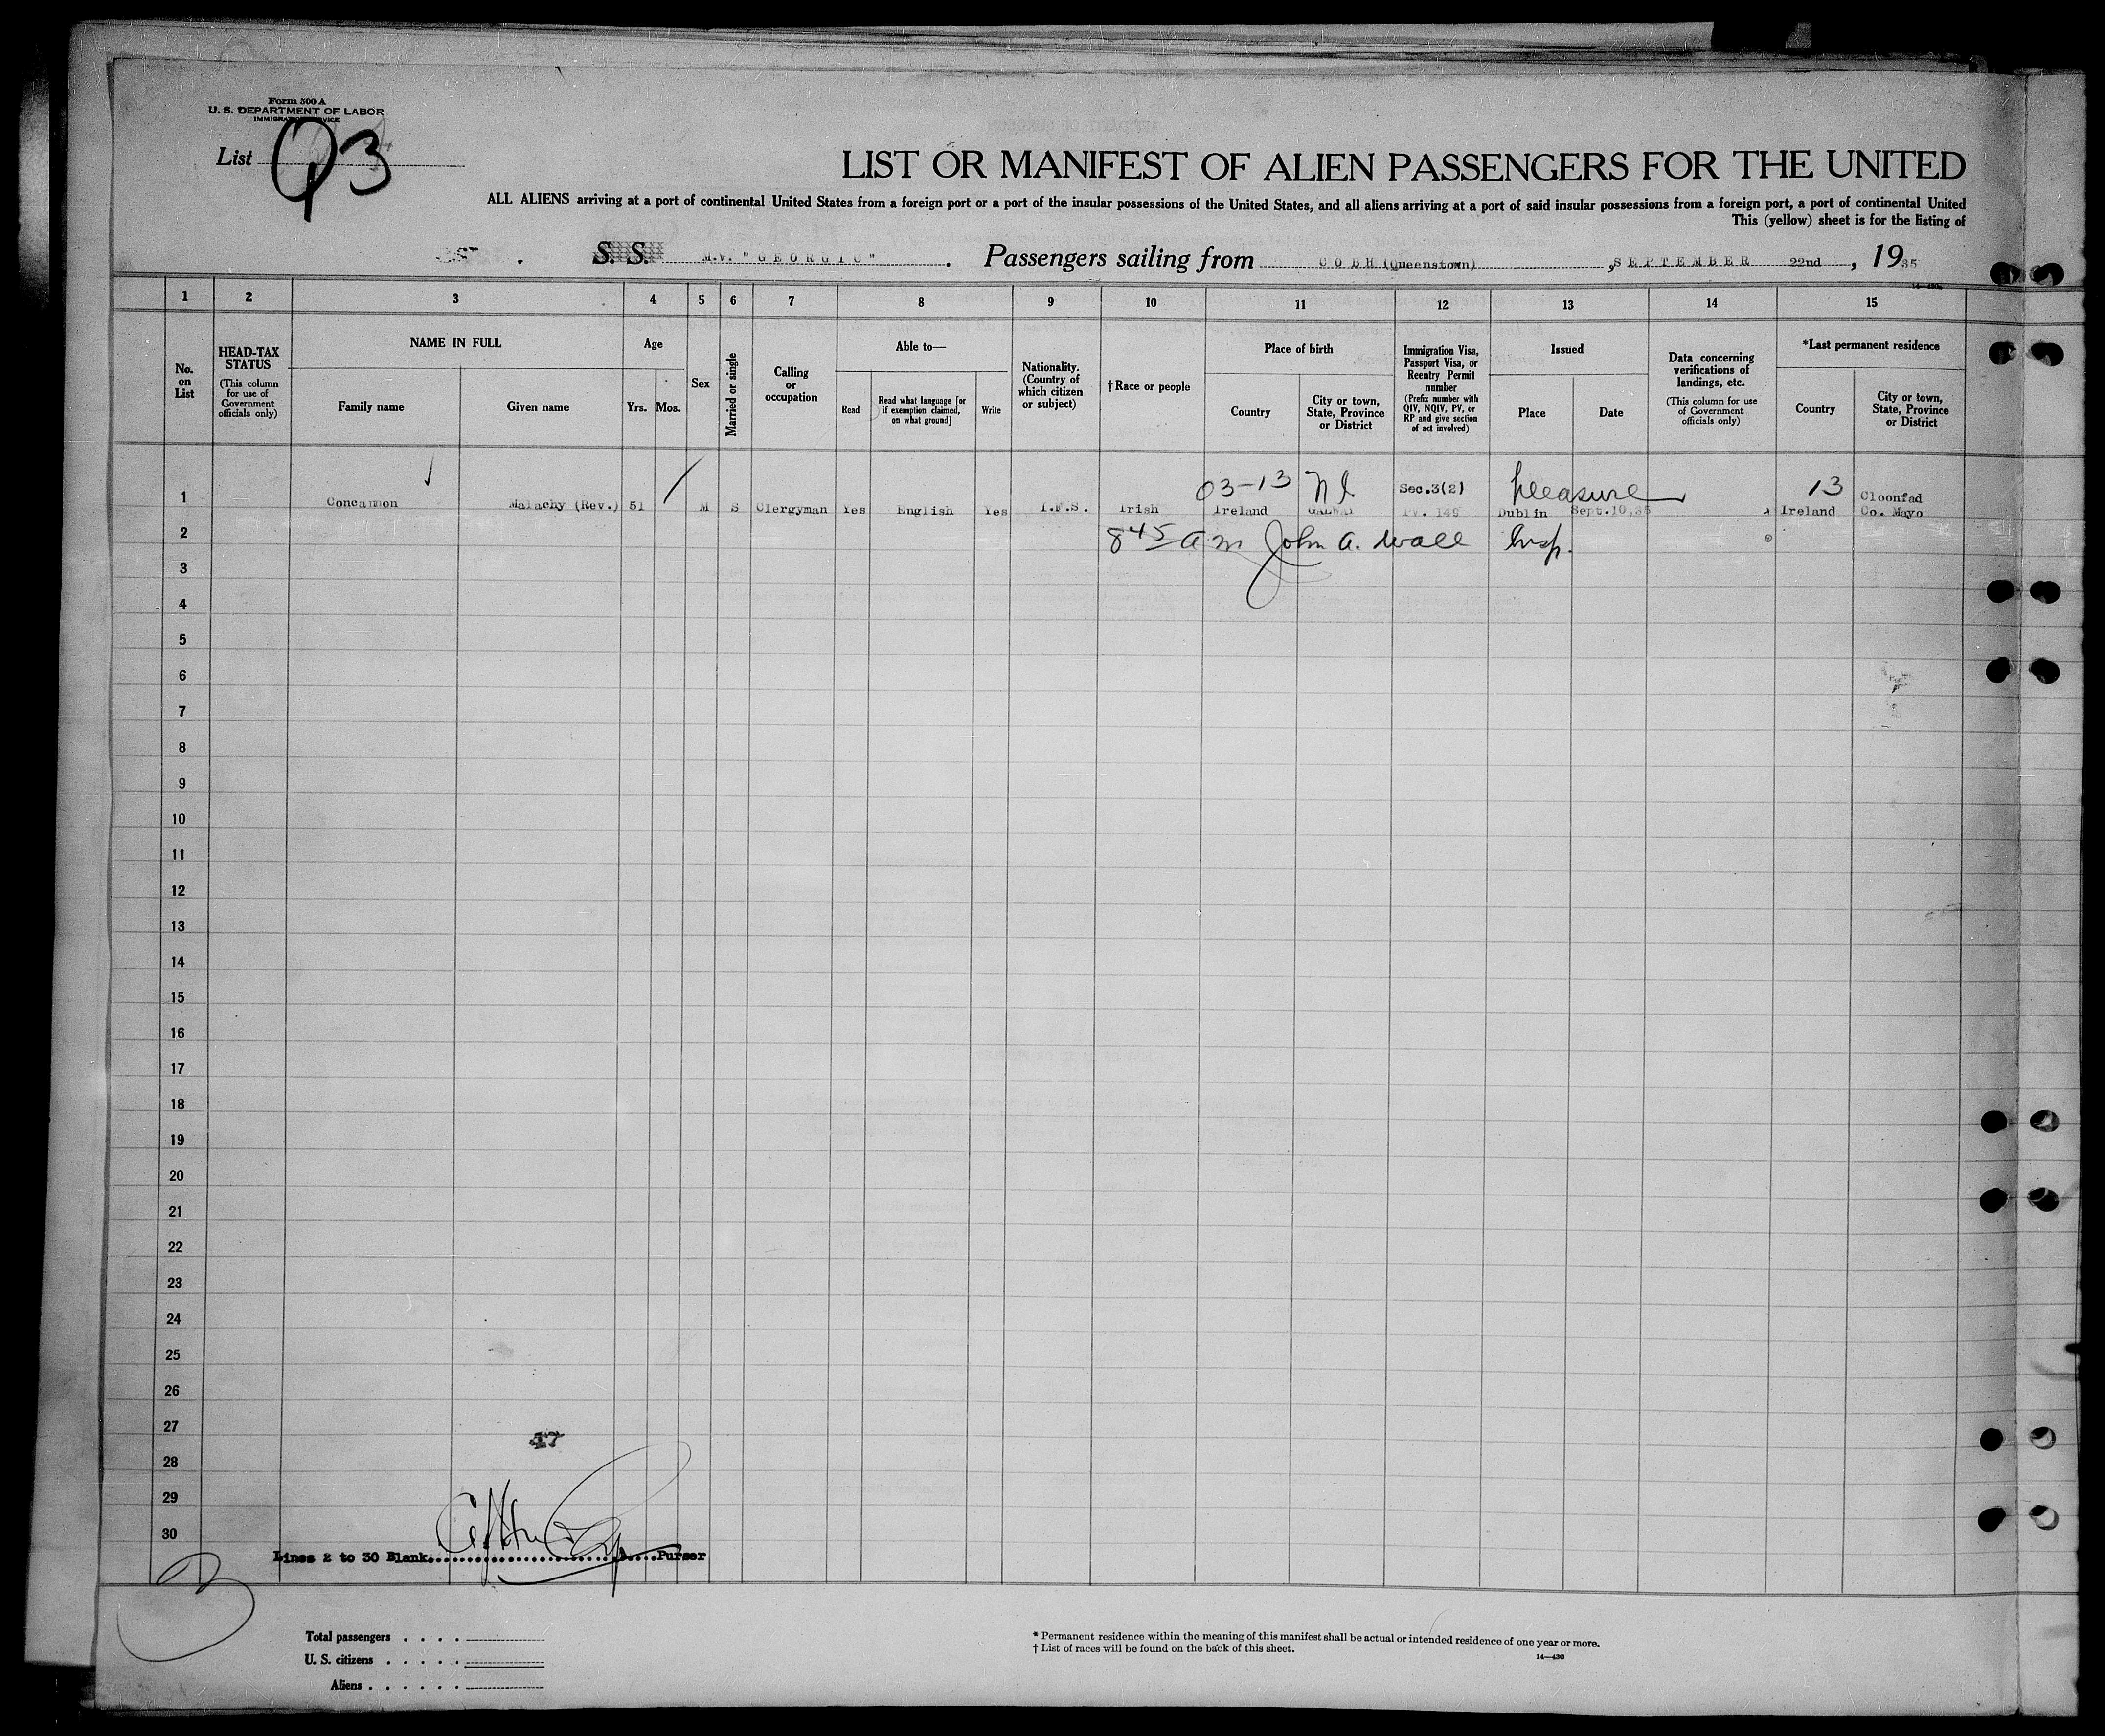 Form 500 A
U. S. DEPARTMENT OF LABOR
IMMIGRATION SERVICE
List Q3
LIST OR MANIFEST OF ALIEN PASSENGERS FOR THE UNITED
ALL ALIENS arriving at a port of continental United States from a foreign port or a port of the insular possessions of the United States, and all aliens arriving at a port of said insular possessions from a foreign port, a port of continental United
This (yellow) sheet is for the listing of
S. S. M.V. "GEORGIC" . Passengers sailing from COBH (Queenstown) , SEPTEMBER 22nd , 1935
1 2 3 4 5 6 7 8 9 10 11 12 13 14 15
No. on List
HEAD-TAX STATUS
(This column for use of Government officials only)
NAME IN FULL
Family name
Given name
Age
Yrs.
Mos.
Sex
Married or single
Calling or occupation
Able to—
Read
Read what language [or if exemption claimed, on what ground]
Write
Nationality. (Country of which citizen or subject)
†Race or people
Place of birth
Country
City or town, State, Province or District
Immigration Visa, Passport Visa, or Reentry Permit number
(Prefix number with QIV, NQIV, PV, or RP and give section of act involved)
Issued
Place
Date
Data concerning verifications of landings, etc.
(This column for use of Government officials only)
*Last permanent residence
Country
City or town, State, Province or District
03-13 Sec.3(2) pleasure 13 Cloonfad
1 Concannon Malachy (Rev.) 51 M S Clergyman Yes English Yes I.F.S. Irish Ireland GALWAY PV. 149 Dublin Sept.10,35 Ireland Co. Mayo
2 8 45 am John A. Wall Insp.
3
4
5
6
7
8
9
10
11
12
13
14
15
16
17
18
19
20
21
22
23
24
25
26
27
47
28
29
30
Lines 2 to 30 Blank Purser
Total passengers . . . .
U. S. citizens . . . . .
Aliens . . . . . .
* Permanent residence within the meaning of this manifest shall be actual or intended residence of one year or more.
† List of races will be found on the back of this sheet.
14—430